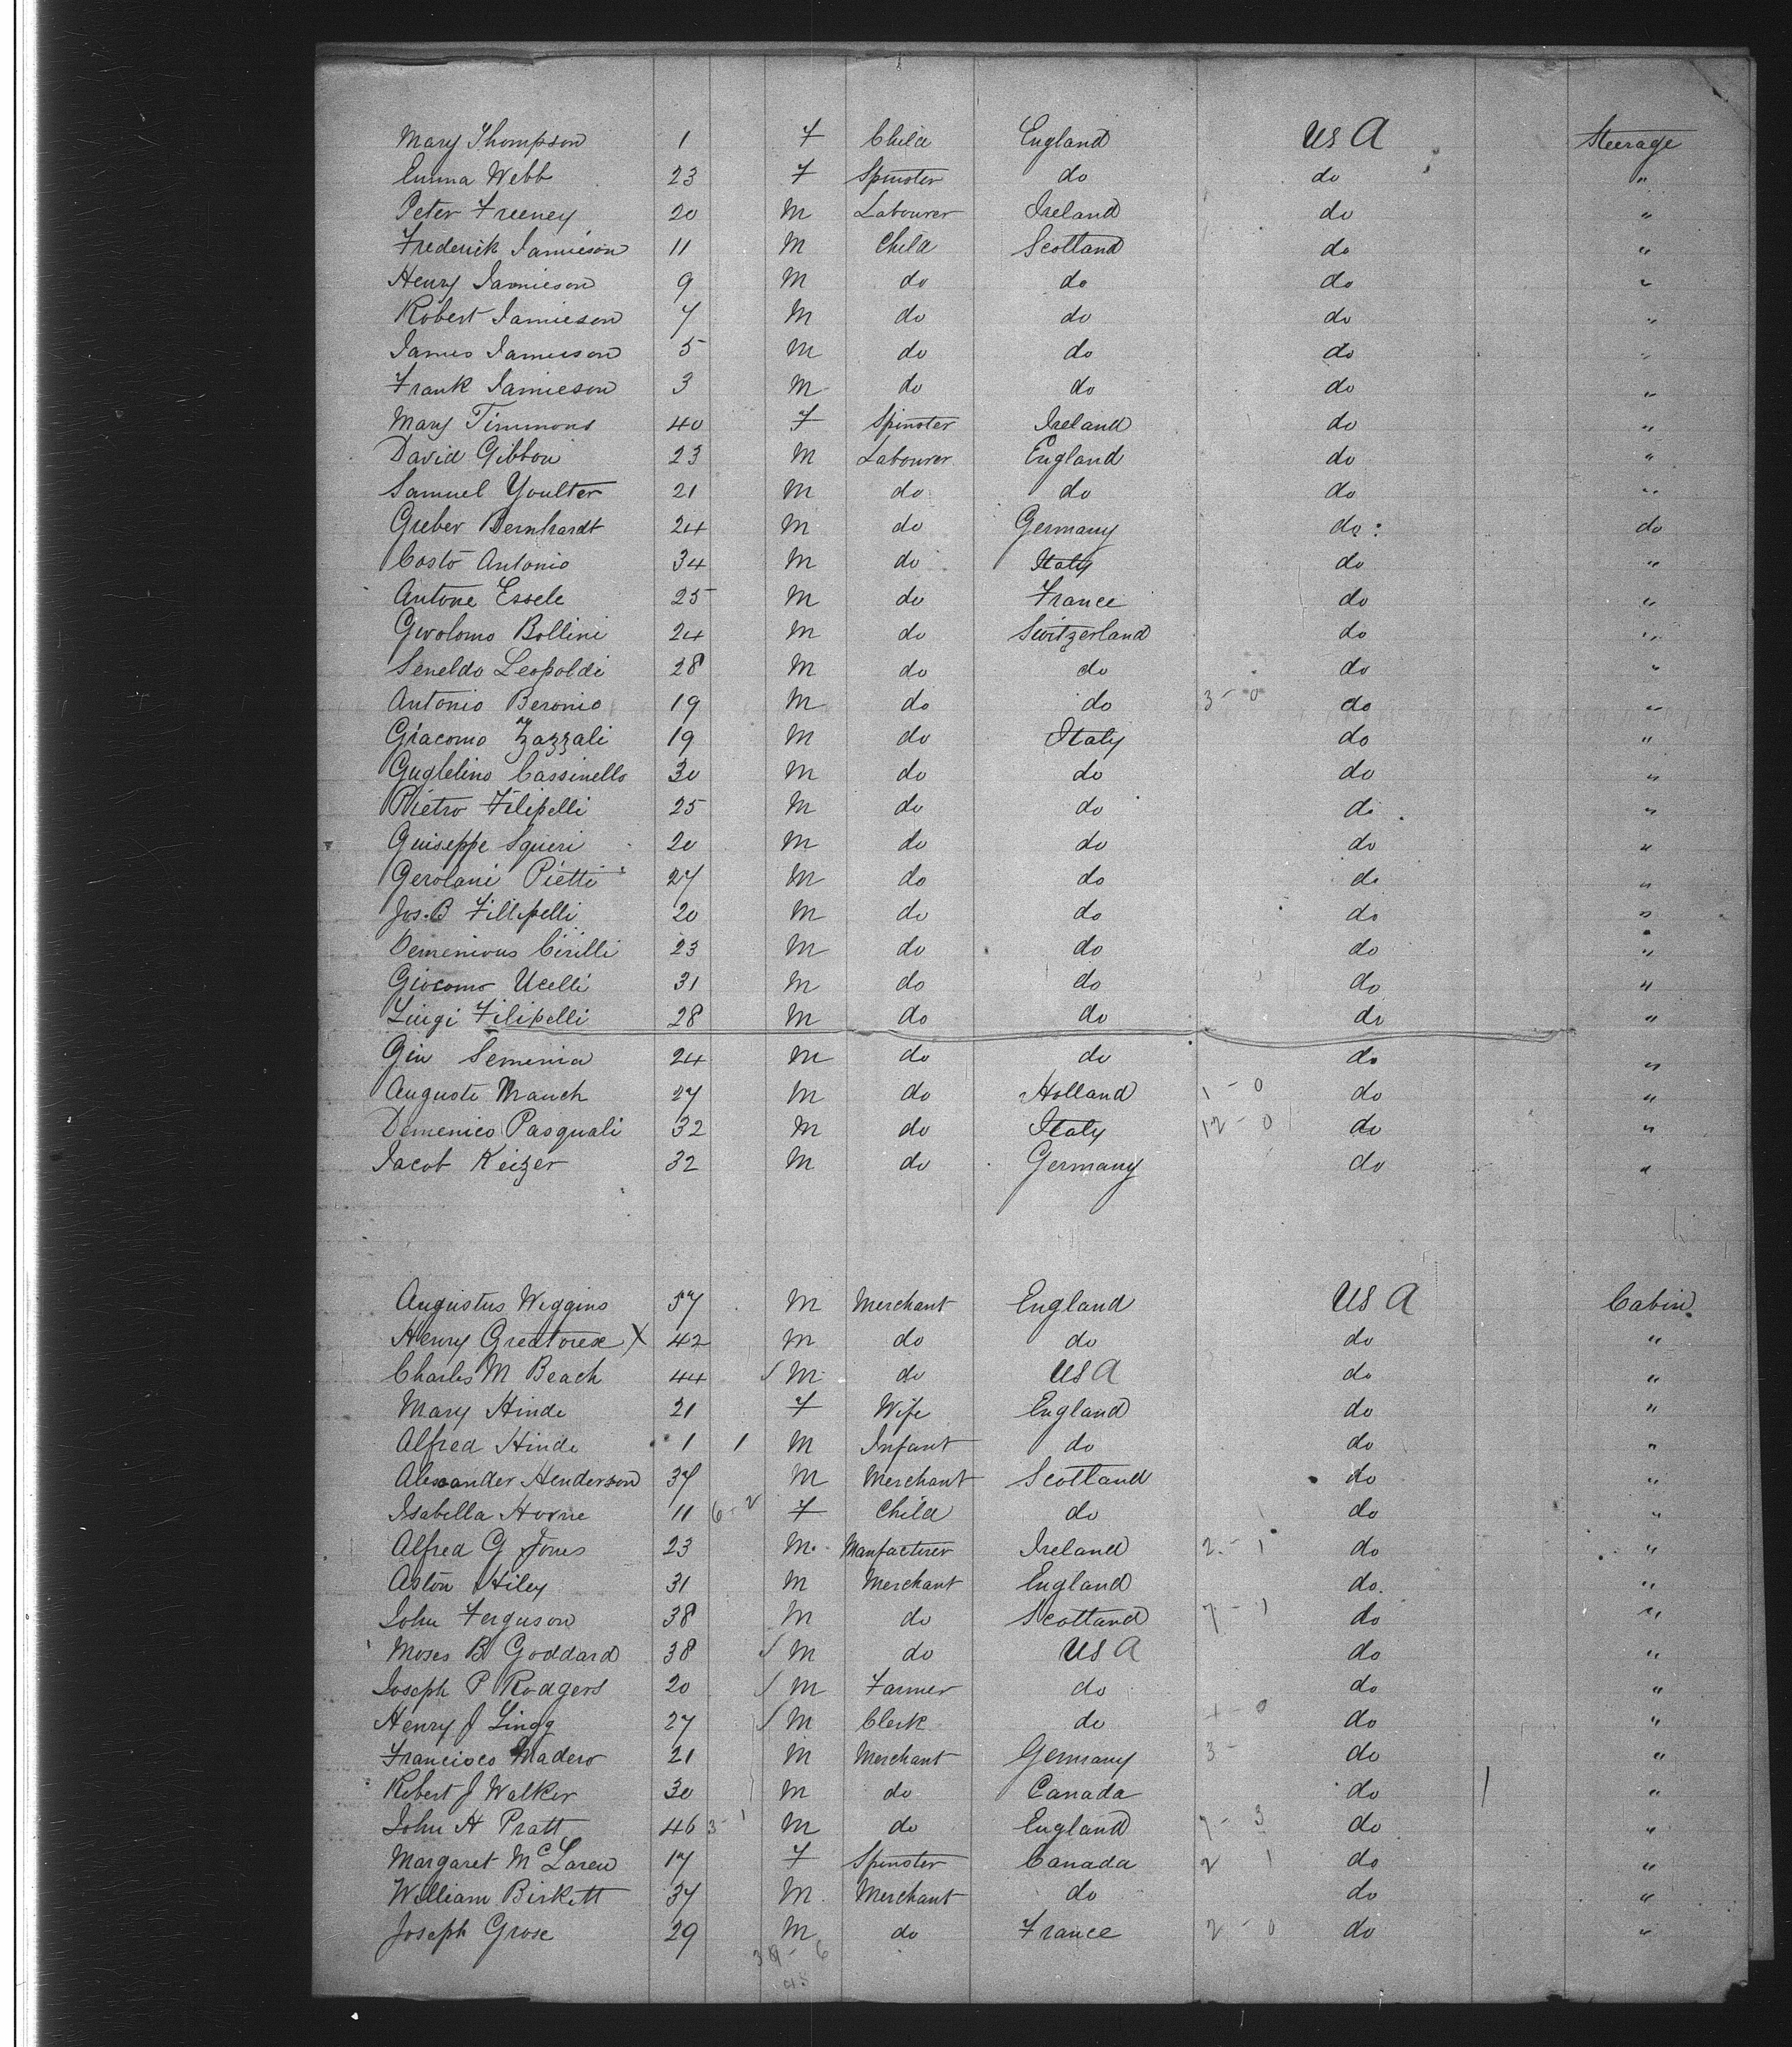 Mary Thompson 1 F Child England USA Steerage
Emma Webb 23 F Spinster do do "
Peter Freeney 20 M Labourer Ireland do "
Frederick Jamieson 11 M Child Scotland do "
Henry Jamieson 9 M do do do "
Robert Jamieson 7 M do do do "
James Jamieson 5 M do do do "
Frank Jamieson 3 M do do do "
Mary Timmons 40 F Spinster Ireland do "
David Gibbon 23 M Labourer England do "
Samuel Youlter 21 M do do do "
Greber Bernhardt 24 M do Germany do do
Costo Antonio 34 M do Italy do "
Antone Essele 25 M do France do "
Gwolomo Bollini 24 M do Switzerland do "
Seneldo Leopoldi 28 M do do do "
Antonio Beronio 19 M do do 3 - 0 do "
Giacomo Zazzali 19 M do Italy do "
Guglelino Cassinello 30 M do do do "
Pietro Filipelli 25 M do do do "
Guiseppe Squeri 20 M do do do "
Gerolani Pietti 27 M do do do "
Jos. B Fillipelli 20 M do do do "
Demenious Cirilli 23 M do do do "
Giocomo Ucelli 31 M do do do "
Luigi Filipelli 28 M do do do "
Giu Semenia 24 M do do do "
Auguste Mauch 27 M do Holland 1 - 0 do "
Domenico Pasquali 32 M do Italy 12 - 0 do "
Jacob Keizer 32 M do Germany do "
Augustus Wiggins 57 M Merchant England USA Cabin
Henry Greatorex X 42 M do do do "
Charles M Beach 44 / M do USA do "
Mary Hinde 21 F Wife England do "
Alfred Hinde 1 1 M Infant do do "
Alexander Henderson 37 M Merchant Scotland do "
Isabella Horne 11 6 - 2 F Child do do "
Alfred G Jones 23 M Manfacturer Ireland 2 - 1 do "
Aston Hiley 31 M Merchant England do "
John Ferguson 38 M do Scotland 7 - 1 do "
Moses B Goddard 38 / M do USA do "
Joseph P Rodgers 20 / M Farmer do do "
Henry J Lingg 27 / M Clerk do - 0 do "
Francisco Madero 21 M Merchant Germany 3 - do "
Robert J Walker 30 M do Canada do "
John H Pratt 46 3 - 1 M do England 7 - 3 do "
Margaret McLaren 17 F Spinster Canada 2 1 do "
William Birkett 37 M Merchant do do "
Joseph Grose 29 M do France 2 - 0 do "
39 - 6